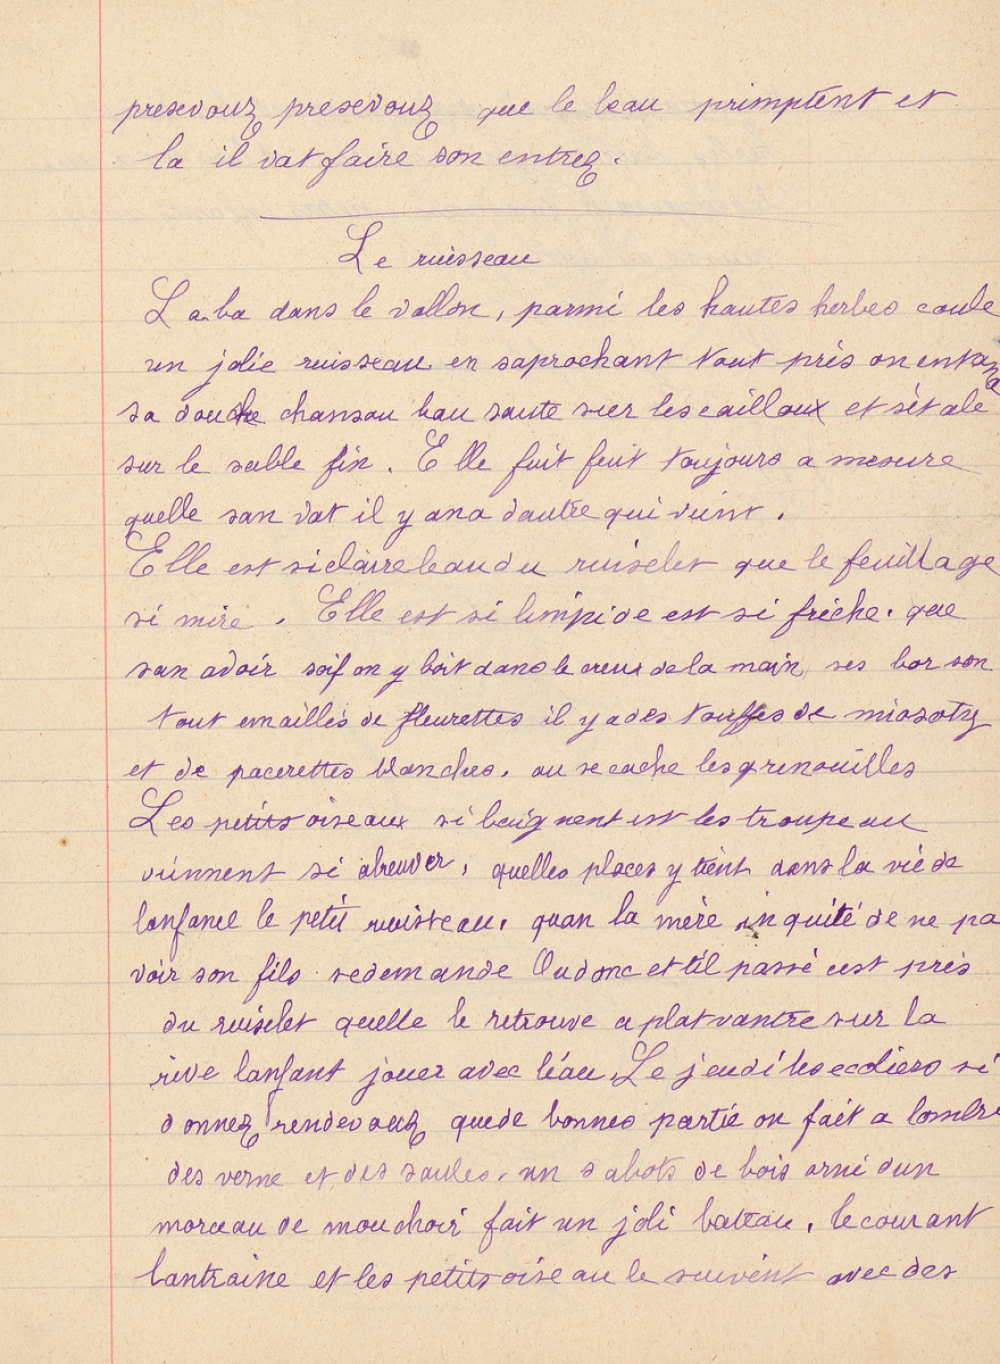 presevouz presevouz que le beau primptent et
la il vat faire son entrez.
Le ruisseau
La ba dans le vallon, parmi les hautes herbes coule
un jolie ruisseau en saprochant tout près on entand
sa douche chansau leau saute sur les cailloux et sètale
sur le sable fin. Elle fuit fuit toujours a mesure
quelle san vat il y ana dautre qui vient.
Elle est si claire leau du ruiselet que le feuillage
si mire. Elle est si limpide est si frèche. que
san avoir soif on y boit dans le creux de la main, ses bor son
tout emaillés de fleurettes il y a des touffes de miosotis
et de pacerettes blanches. ou se cache les grenouilles
Les petits oiseaux si baignent est les troupeau
viennent si abreuver, quelles places y tient dans la vie de
lanfance le petit ruisseau. quan la mère inquité de ne pa
voir son fils se demande Ou donc et til passé cest près
du ruiselet quelle le retrouve a plat vantre sur la
rive lanfant jouer avec l'éau. Le jeudi les ecoliers si
donnez rendevouz que de bonnes partie on fait a lombre
des verne et des saules. un sabots de bois orné dun
morceau de mouchoir fait un joli bateau. le courant
lantraine et les petits oiseau le suivent avec des